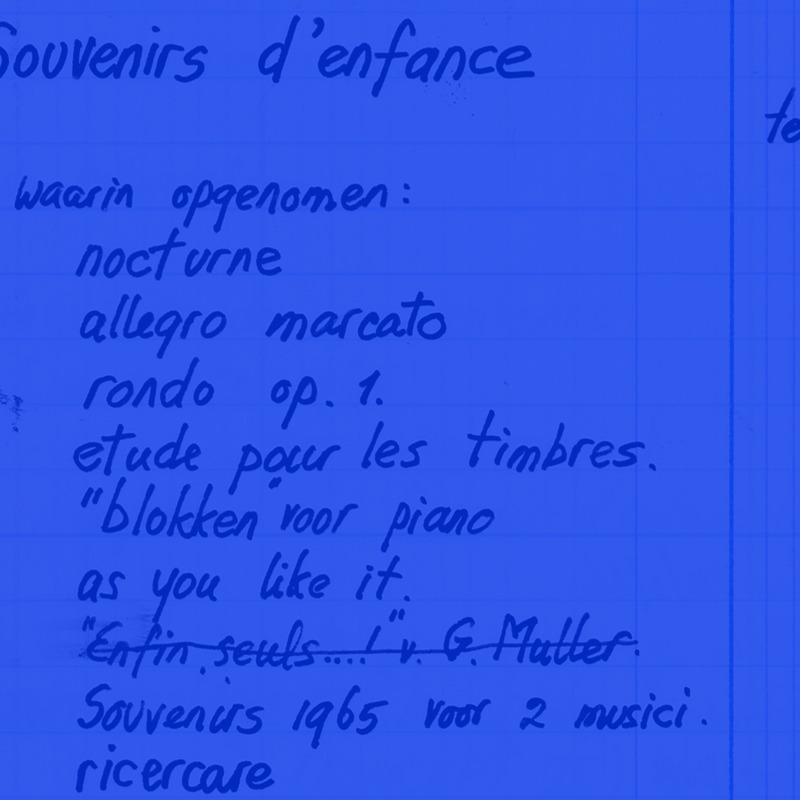 Souvenirs d'enfance
te
waarin opgenomen:
nocturne
allegro marcato
rondo op. 1.
etude pour les timbres.
"blokken" voor piano
as you like it.
"Enfin seuls....!" v. G. Muller.
Souvenirs 1965 voor 2 musici.
ricercare